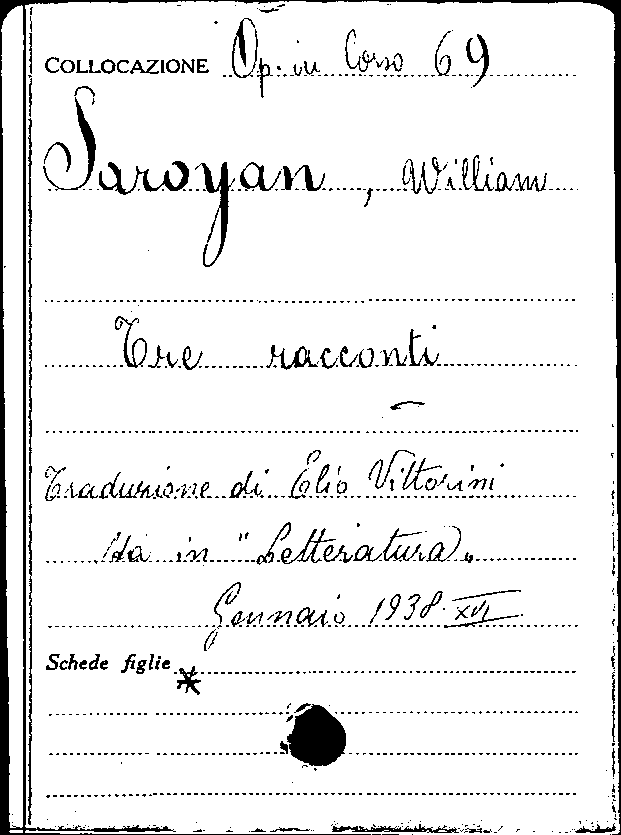 COLLOCAZIONE Op. in Corso 69
Saroyan, William
Tre racconti
Traduzione di Elio Vittorini
Sta in "Letteratura"
Gennaio 1938 XVI
Schede figlie *